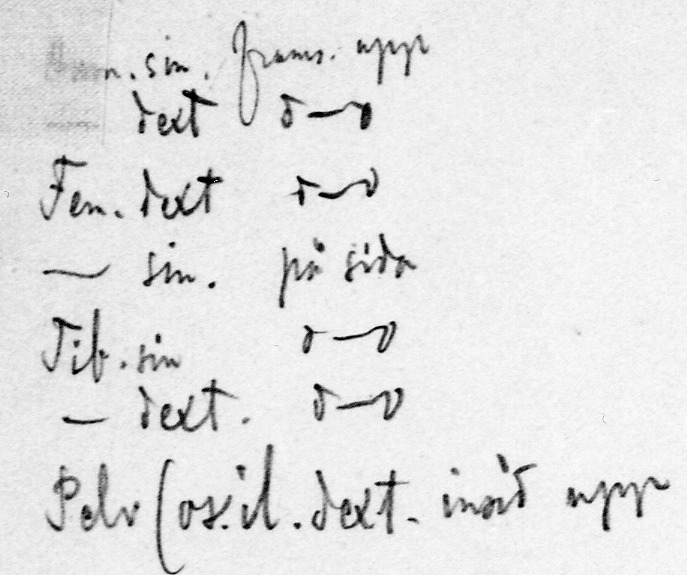 sin. frams. upp
— dext d—o
Fem. dext d—o
— sin. på sida
Tib. sin d—o
— dext. d—o
Pelv (os. il. dext. insid upp